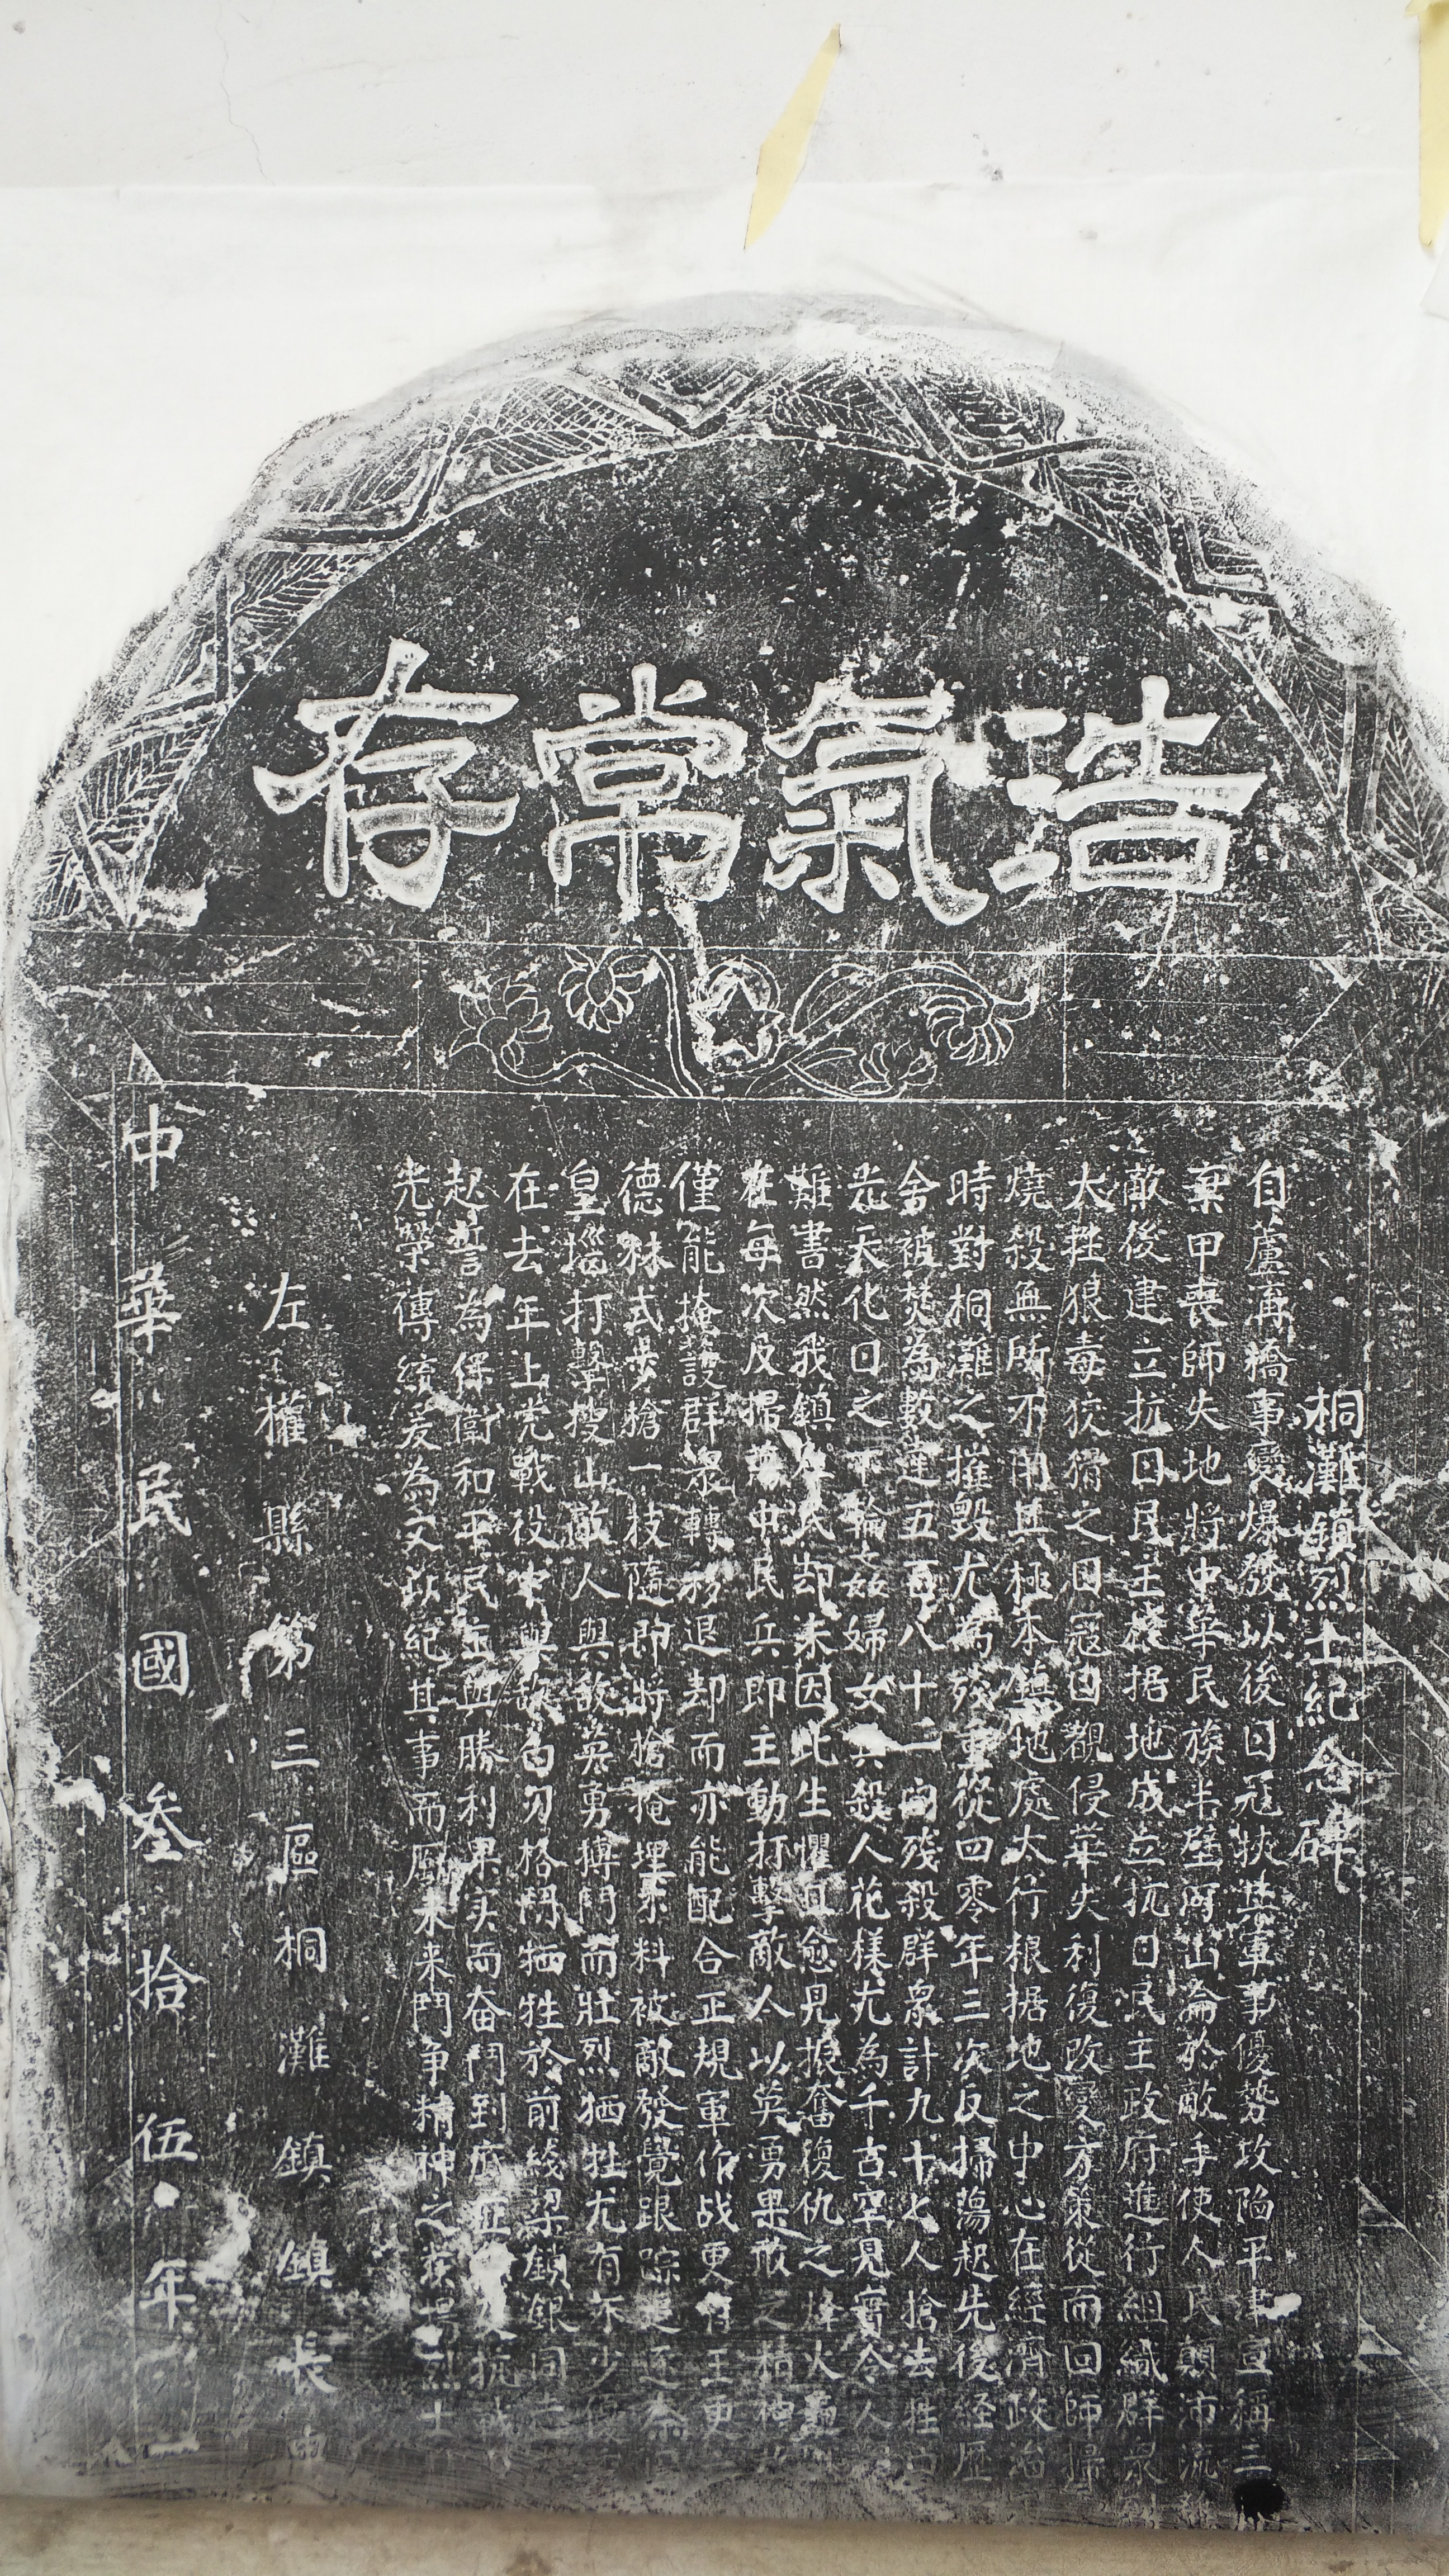 浩氣常存
桐灘鎮烈士紀念碑
自蘆溝橋事變爆發以後日寇挾其軍事優勢攻陷平津宣稱三
棄甲喪師失地將中華民族半壁河山淪於敵手使人民顛沛流
敵後建立抗日民主根据地成立抗日民主政府進行組織群眾
大胜狼毒狡猾之日寇因觀侵華失利復改变方策從而回師掃
燒殺無所不用其極本鎮地處太行根据地之中心在經濟政治
時對桐灘之摧毀尤為殘重從四零年三次反掃蕩起先後经歷
舍被焚為數達五百八十二间殘殺群眾計九十七人搶去牲口
光天化日之下輪姦婦女兵殺人花樣尤為千古罕見實令人
難書然我鎮人民却未因此生懼且愈見振奮復仇之烽火
在每次反掃蕩中民兵即主動打擊敵人以英勇果敢之精神
僅能掩護群眾轉移退却而亦能配合正規軍作战更有王更
德林式步槍一枝隨即將槍掩埋不料被敵發覺跟踪
皇擾打擊搜山敵人與敵英勇搏鬥而壯烈牺牲尤有
在去年上党戰役中與敵白刃格鬥牺牲於前綫梁鎖銀同
起誓為保衛和平民主與勝利果实而奋鬥到底
光榮傳統爰為文以紀其事而励未来鬥争精神之发揚烈士
左權縣第三區桐灘鎮鎮長
中華民國叁拾伍年